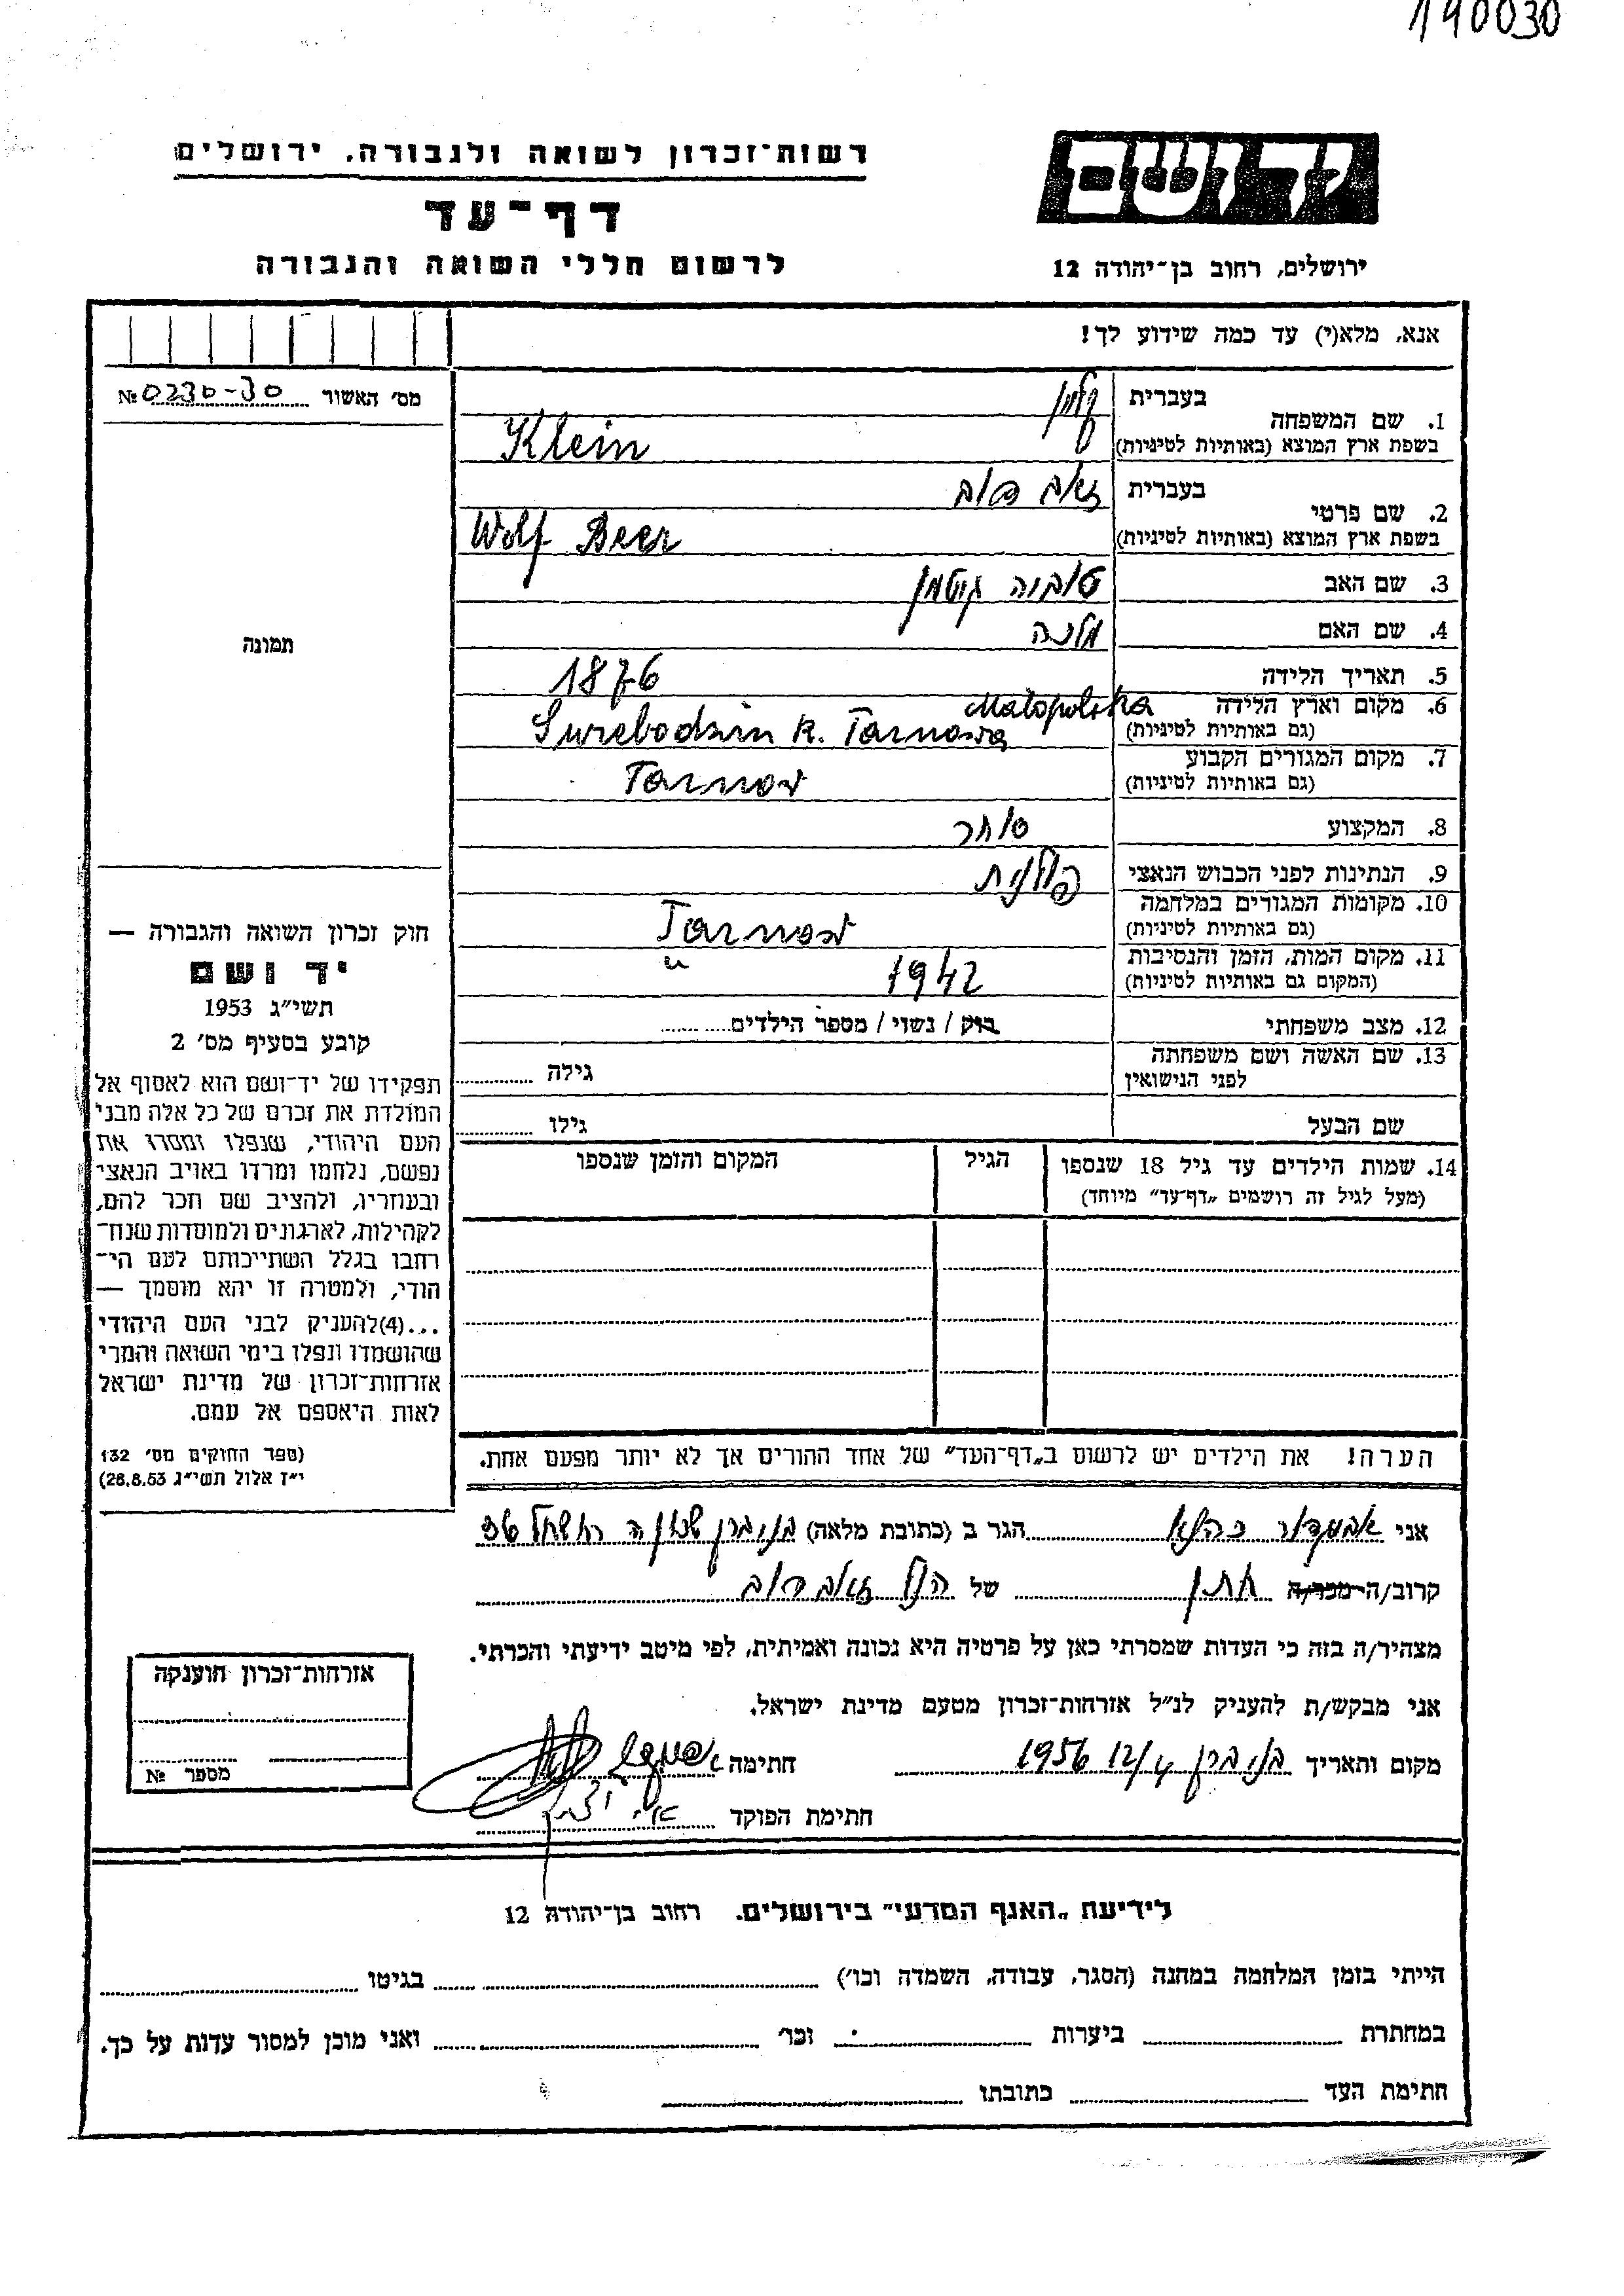 190030
רשות־זכרון לשואה ולגבורה, ירושלים
דף־עד
לרשום חללי השואה והגבורה
יד ושם
ירושלים, רחוב בן־יהודה 12
אנא, מלא(י) עד כמה שידוע לך!
מס׳ האשור 0230-30 №
תמונה
1. שם המשפחה בעברית קליין
בשפת ארץ המוצא (באותיות לטיניות) Klein
2. שם פרטי בעברית זאב דוב
בשפת ארץ המוצא (באותיות לטיניות) Wolf Beer
3. שם האב טוביה
4. שם האם מלכה
5. תאריך הלידה 1876
6. מקום וארץ הלידה Małopolska
(גם באותיות לטיניות) k. Tarnowa
7. מקום המגורים הקבוע
(גם באותיות לטיניות) Tarnow
8. המקצוע סוחר
9. הנתינות לפני הכבוש הנאצי פולנית
10. מקומות המגורים במלחמה
(גם באותיות לטיניות) Tarnow
11. מקום המות, הזמן והנסיבות
(המקום גם באותיות לטיניות) " 1942
12. מצב משפחתי רווק / נשוי / מספר הילדים
13. שם האשה ושם משפחתה
לפני הנישואין גילה
שם הבעל גילו
14. שמות הילדים עד גיל 18 שנספו הגיל המקום והזמן שנספו
(מעל לגיל זה רושמים „דף־עד” מיוחד)
הערה! את הילדים יש לרשום ב„דף־העד” של אחד ההורים אך לא יותר מפעם אחת.
חוק זכרון השואה והגבורה —
יד ושם
תשי״ג 1953
קובע בסעיף מס׳ 2
תפקידו של יד־ושם הוא לאסוף אל
המולדת את זכרם של כל אלה מבני
העם היהודי, שנפלו ומסרו את
נפשם, נלחמו ומרדו באויב הנאצי
ובעוזריו, ולהציב שם וזכר להם,
לקהילות, לארגונים ולמוסדות שנח־
רבו בגלל השתייכותם לעם הי־
הודי, ולמטרה זו יהא מוסמך —
...(4) להעניק לבני העם היהודי
שהושמדו ונפלו בימי השואה והמרי
אזרחות־זכרון של מדינת ישראל
לאות היאספם אל עמם.
(ספר החוקים מס׳ 132
י״ז אלול תשי״ג 28.8.53)
אני אביגדור כהנא הגר ב (כתובת מלאה) בני ברק
קרוב/ה מכר/ה חתן של הנ״ל זאב דוב
מצהיר/ה בזה כי העדות שמסרתי כאן על פרטיה היא נכונה ואמיתית, לפי מיטב ידיעתי והכרתי.
אני מבקש/ת להעניק לנ״ל אזרחות־זכרון מטעם מדינת ישראל.
מקום ותאריך בני ברק 12/4 1956 חתימה
חתימת הפוקד
אזרחות־זכרון הוענקה
מספר №
לידיעת „האגף המדעי” בירושלים, רחוב בן־יהודה 12
הייתי בזמן המלחמה במחנה (הסגר, עבודה, השמדה וכו׳) בגיטו
במחתרת ביערות וכו׳ ואני מוכן למסור עדות על כך.
חתימת העד כתובתו